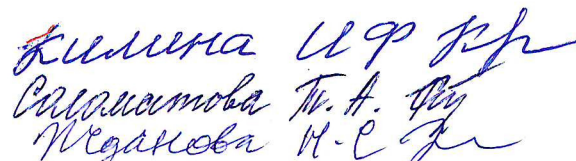 Килина И Ф
Саломатова Т. А.
Жданова Н. С